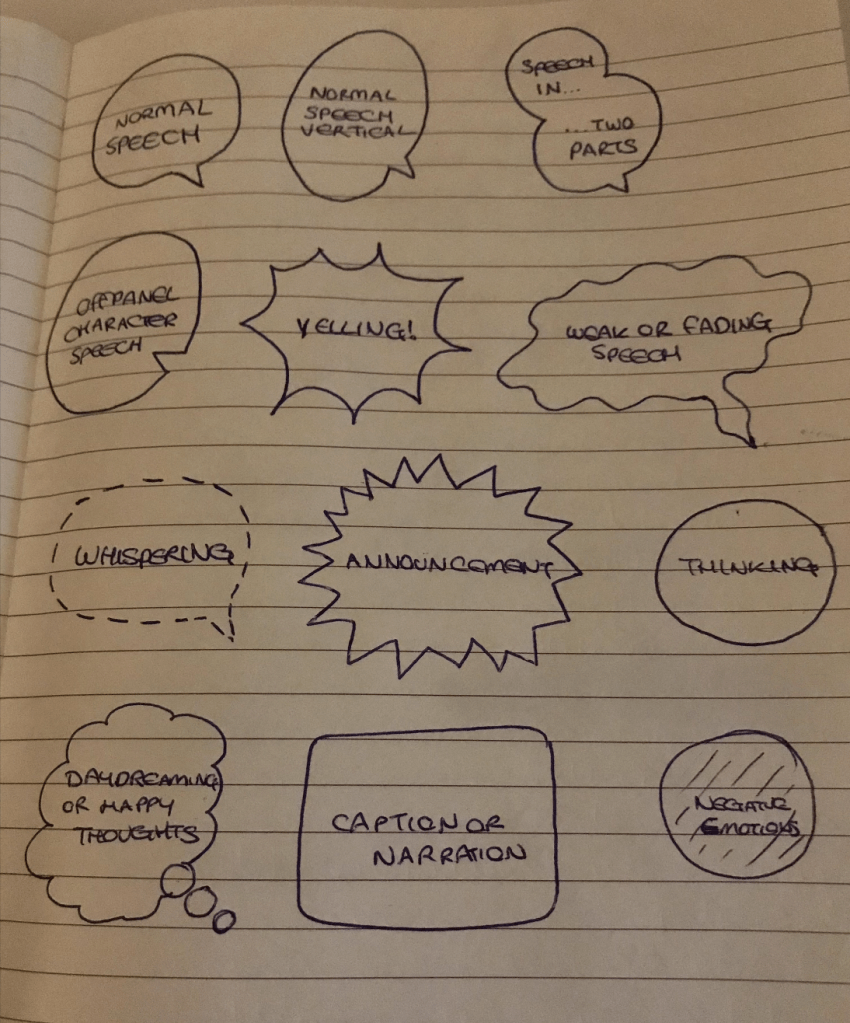 NORMAL
SPEECH
NORMAL
SPEECH
VERTICAL
SPEECH
IN...
...TWO
PARTS
OFFPANEL
CHARACTER
SPEECH
YELLING!
WEAK OR FADING
SPEECH
WHISPERING
ANNOUNCEMENT
THINKING
DAYDREAMING
OR HAPPY
THOUGHTS
CAPTION OR
NARRATION
NEGATIVE
EMOTIONS